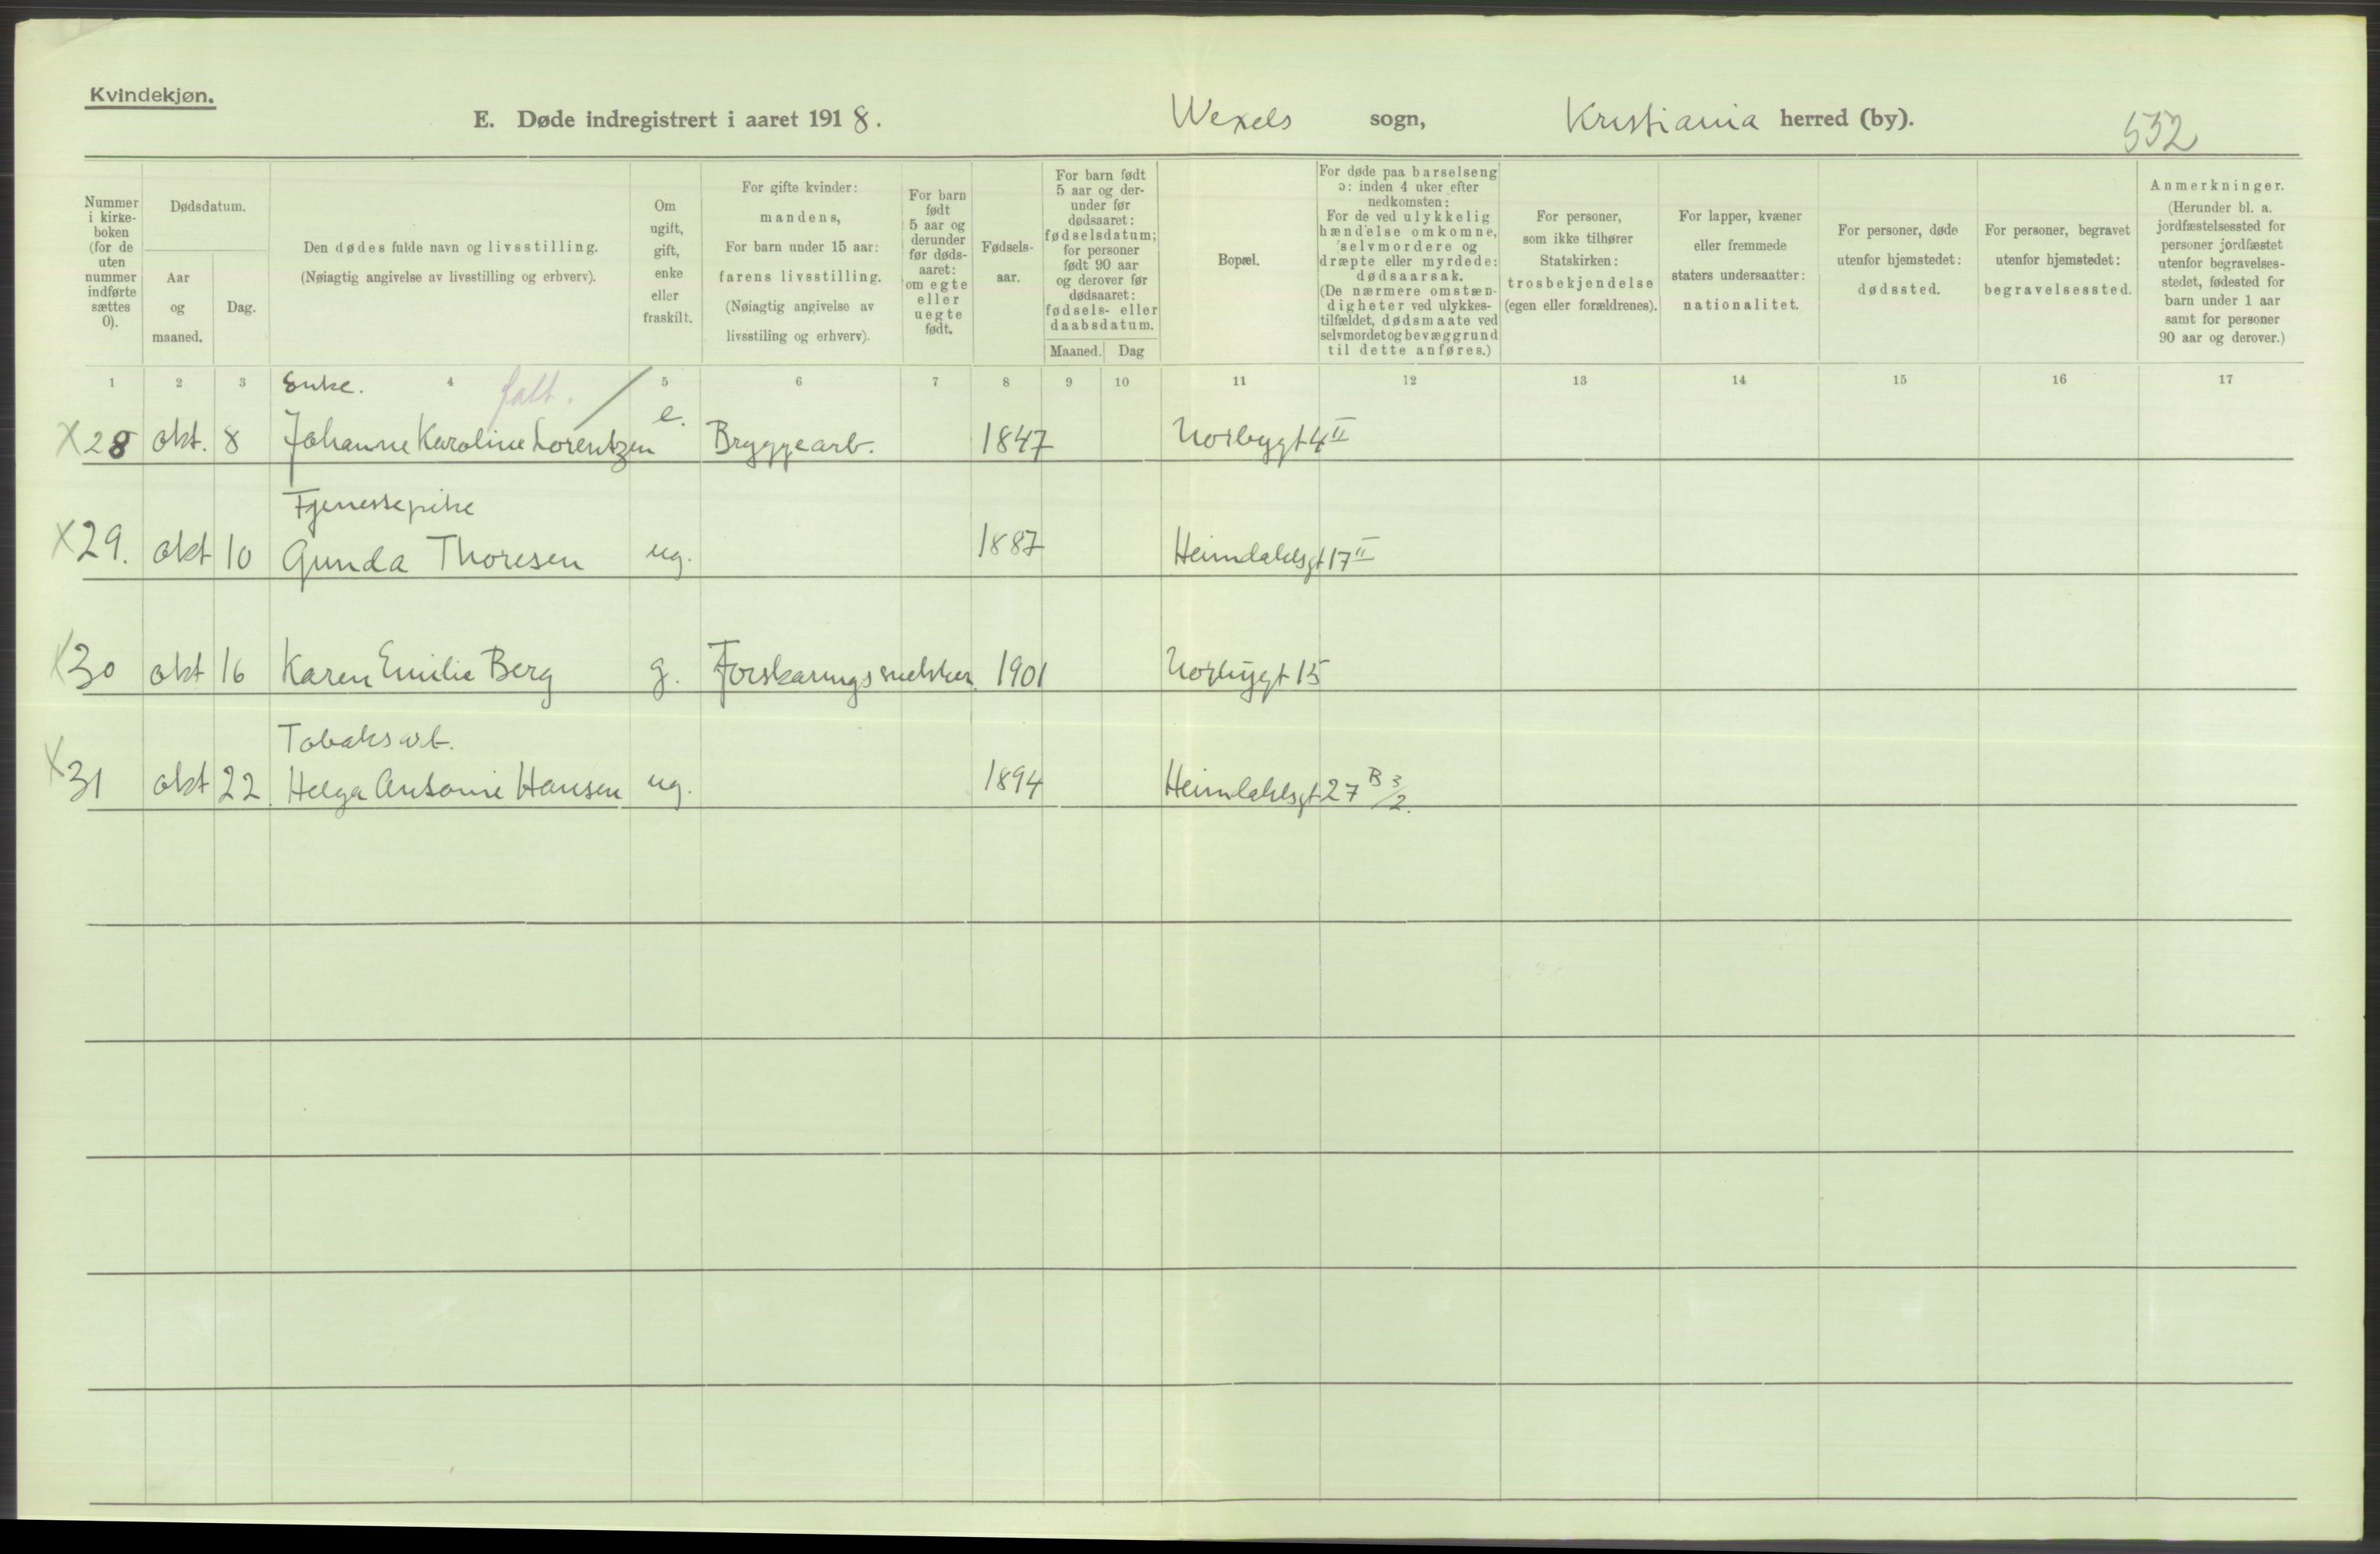 Kvindekjøn.
E. Døde indregistrert i aaret 1918. Wexels sogn, Kristiania herred (by). 532
Nummer i kirkeboken (for de uten nummer indførte sættes 0).
Dødsdatum.
Aar og maaned.
Dag.
Den dødes fulde navn og livsstilling.
(Nøiagtig angivelse av livsstilling og erhverv).
Om ugift, gift, enke eller fraskilt.
For gifte kvinder: mandens,
For barn under 15 aar: farens livsstilling.
(Nøiagtig angivelse av livsstiling og erhverv).
For barn født 5 aar og derunder før dødsaaret: om egte eller uegte født.
Fødselsaar.
For barn født 5 aar og derunder før dødsaaret: fødselsdatum; for personer født 90 aar og derover før dødsaaret: fødsels- eller daabsdatum.
Maaned. Dag
Bopæl.
For døde paa barselseng ɔ: inden 4 uker efter nedkomsten:
For de ved ulykkelig hændelse omkomne, selvmordere og dræpte eller myrdede: dødsaarsak.
(De nærmere omstændigheter ved ulykkestilfældet, dødsmaate ved selvmordet og bevæggrund til dette anføres.)
For personer, som ikke tilhører Statskirken: trosbekjendelse (egen eller forældrenes).
For lapper, kvæner eller fremmede staters undersaatter: nationalitet.
For personer, døde utenfor hjemstedet: dødssted.
For personer, begravet utenfor hjemstedet: begravelsessted.
Anmerkninger.
(Herunder bl. a. jordfæstelsessted for personer jordfæstet utenfor begravelsesstedet, fødested for barn under 1 aar samt for personer 90 aar og derover.)
1 2 3 4 5 6 7 8 9 10 11 12 13 14 15 16 17
Enke. falt.
X 28 okt. 8 Johanne Karoline Lorentzen e. Bryggearb. 1847 Norbygt 4 II
Tjenestepike
X 29. okt 10 Gunda Thoresen ug. 1887 Heimdalsgt 17 II
X 30 okt 16 Karen Emilie Berg g. 1901 Norbygt 15
Tobaksarb.
X 31 okt 22 Helga Antonie Hansen ug. 1894 Heimdalsgt 27 B 3/2.